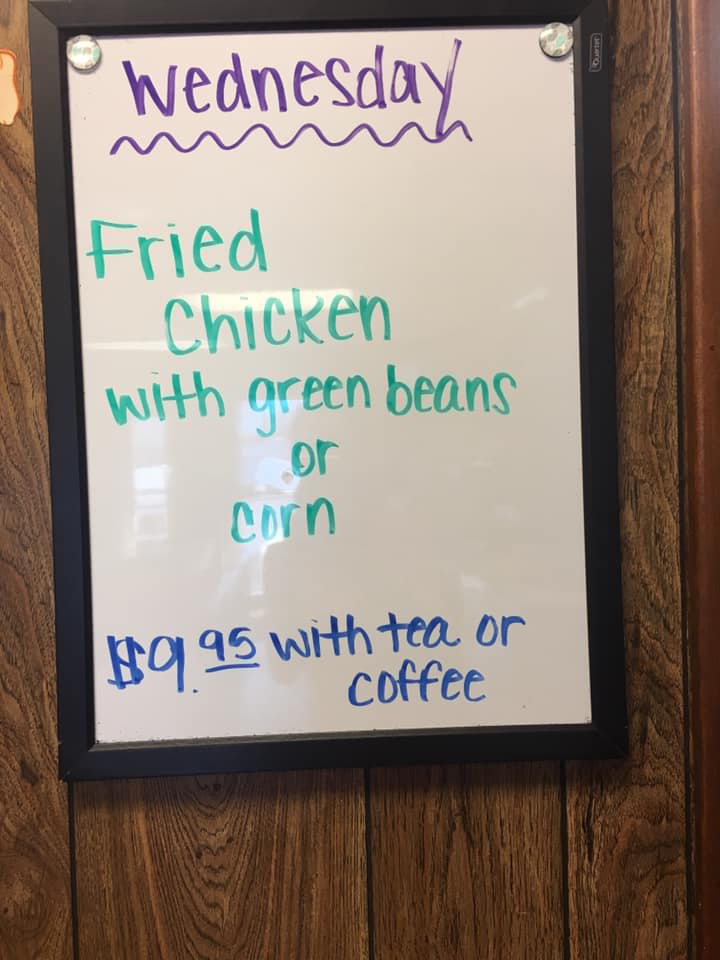 Wednesday
Fried
Chicken
with green beans
or
corn
$9.95 with tea or
coffee
Quartet